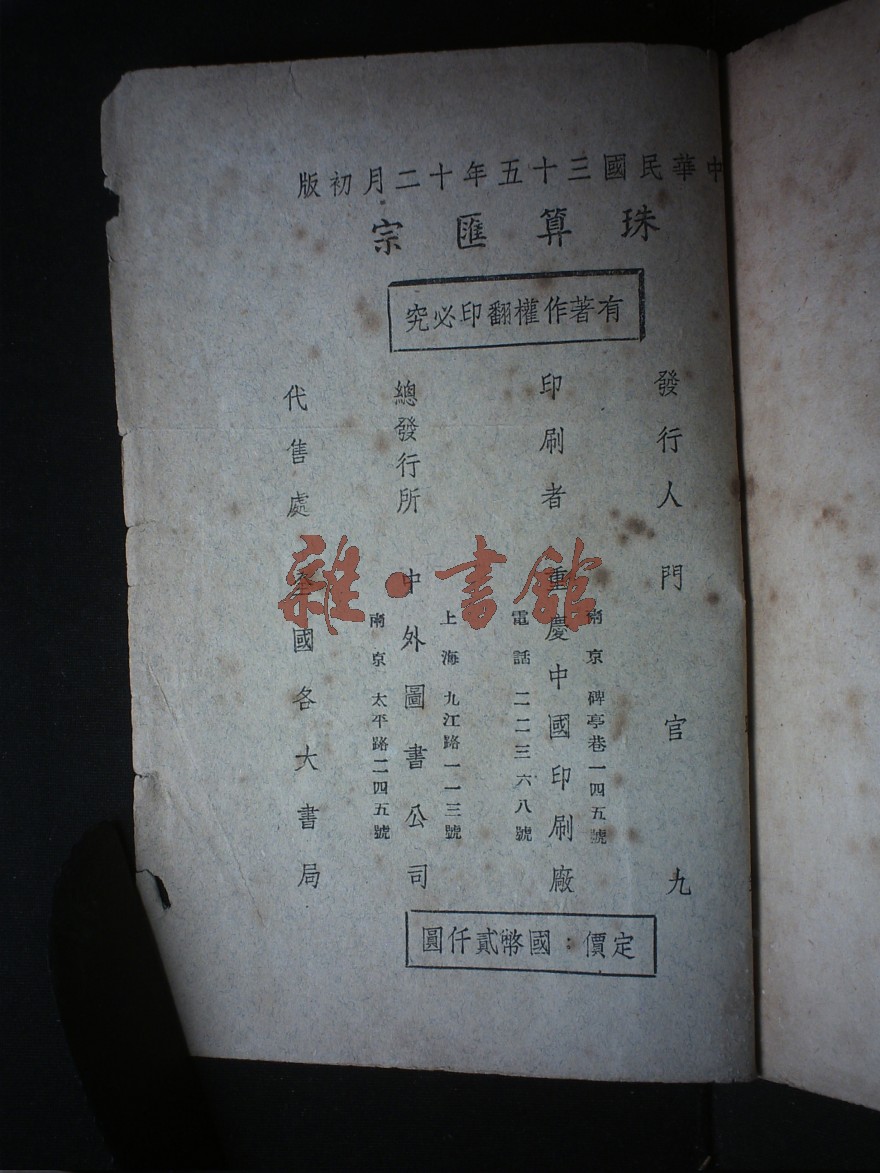 中華民國三十五年十二月初版
珠算匯宗
有著作權翻印必究
發行人 門官九
印刷者 重慶中國印刷廠
南京碑亭巷一四五號
電話二二三六八號
總發行所 中外圖書公司
上海九江路一一三號
南京太平路二四五號
代售處 全國各大書局
定價：國幣貳仟圓
雜·書館